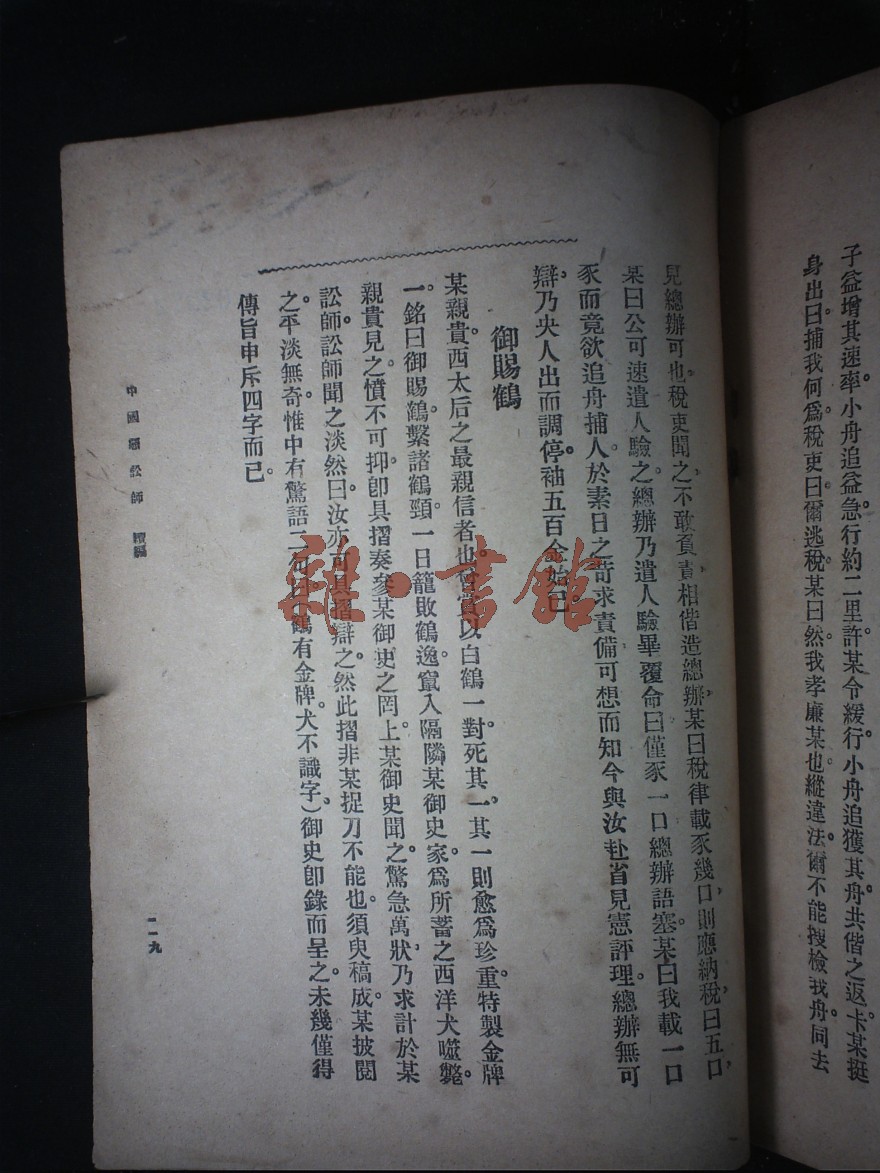 子益增其速率。小舟追益急行約二里許某令緩行小舟追獲其舟共偕之返卡某挺
身出曰捕我何爲稅吏曰爾逃稅某曰然我孝廉某也縱違法爾不能搜檢我舟同去
見總辦可也稅吏聞之不敢負責相偕造總辦某曰稅律載豕幾口則應納稅曰五口
某曰公可速遣人驗之總辦乃遣人驗畢覆命曰僅豕一口總辦語塞某曰我載一口
豕而竟欲追舟捕人於素日之苛求責備可想而知今與汝赴省見憲評理總辦無可
辯乃央人出而調停袖五百金始已
御賜鶴
某親貴西太后之最親信者也以白鶴一對死其一其一則愈爲珍重特製金牌
一銘曰御賜鶴繫諸鶴頸一日籠敗鶴逸竄入隔隣某御史家爲所蓄之西洋犬噬斃
親貴見之憤不可抑卽具摺奏參某御史之罔上某御史聞之驚急萬狀乃求計於某
訟師訟師聞之淡然曰汝亦可具摺辯之然此摺非某捉刀不能也須臾稿成某披閱
之平淡無奇惟中有驚語二句曰(鶴有金牌犬不識字)御史卽錄而呈之未幾僅得
傳旨申斥四字而已
中國訟師 續編
一一九
雜·書館